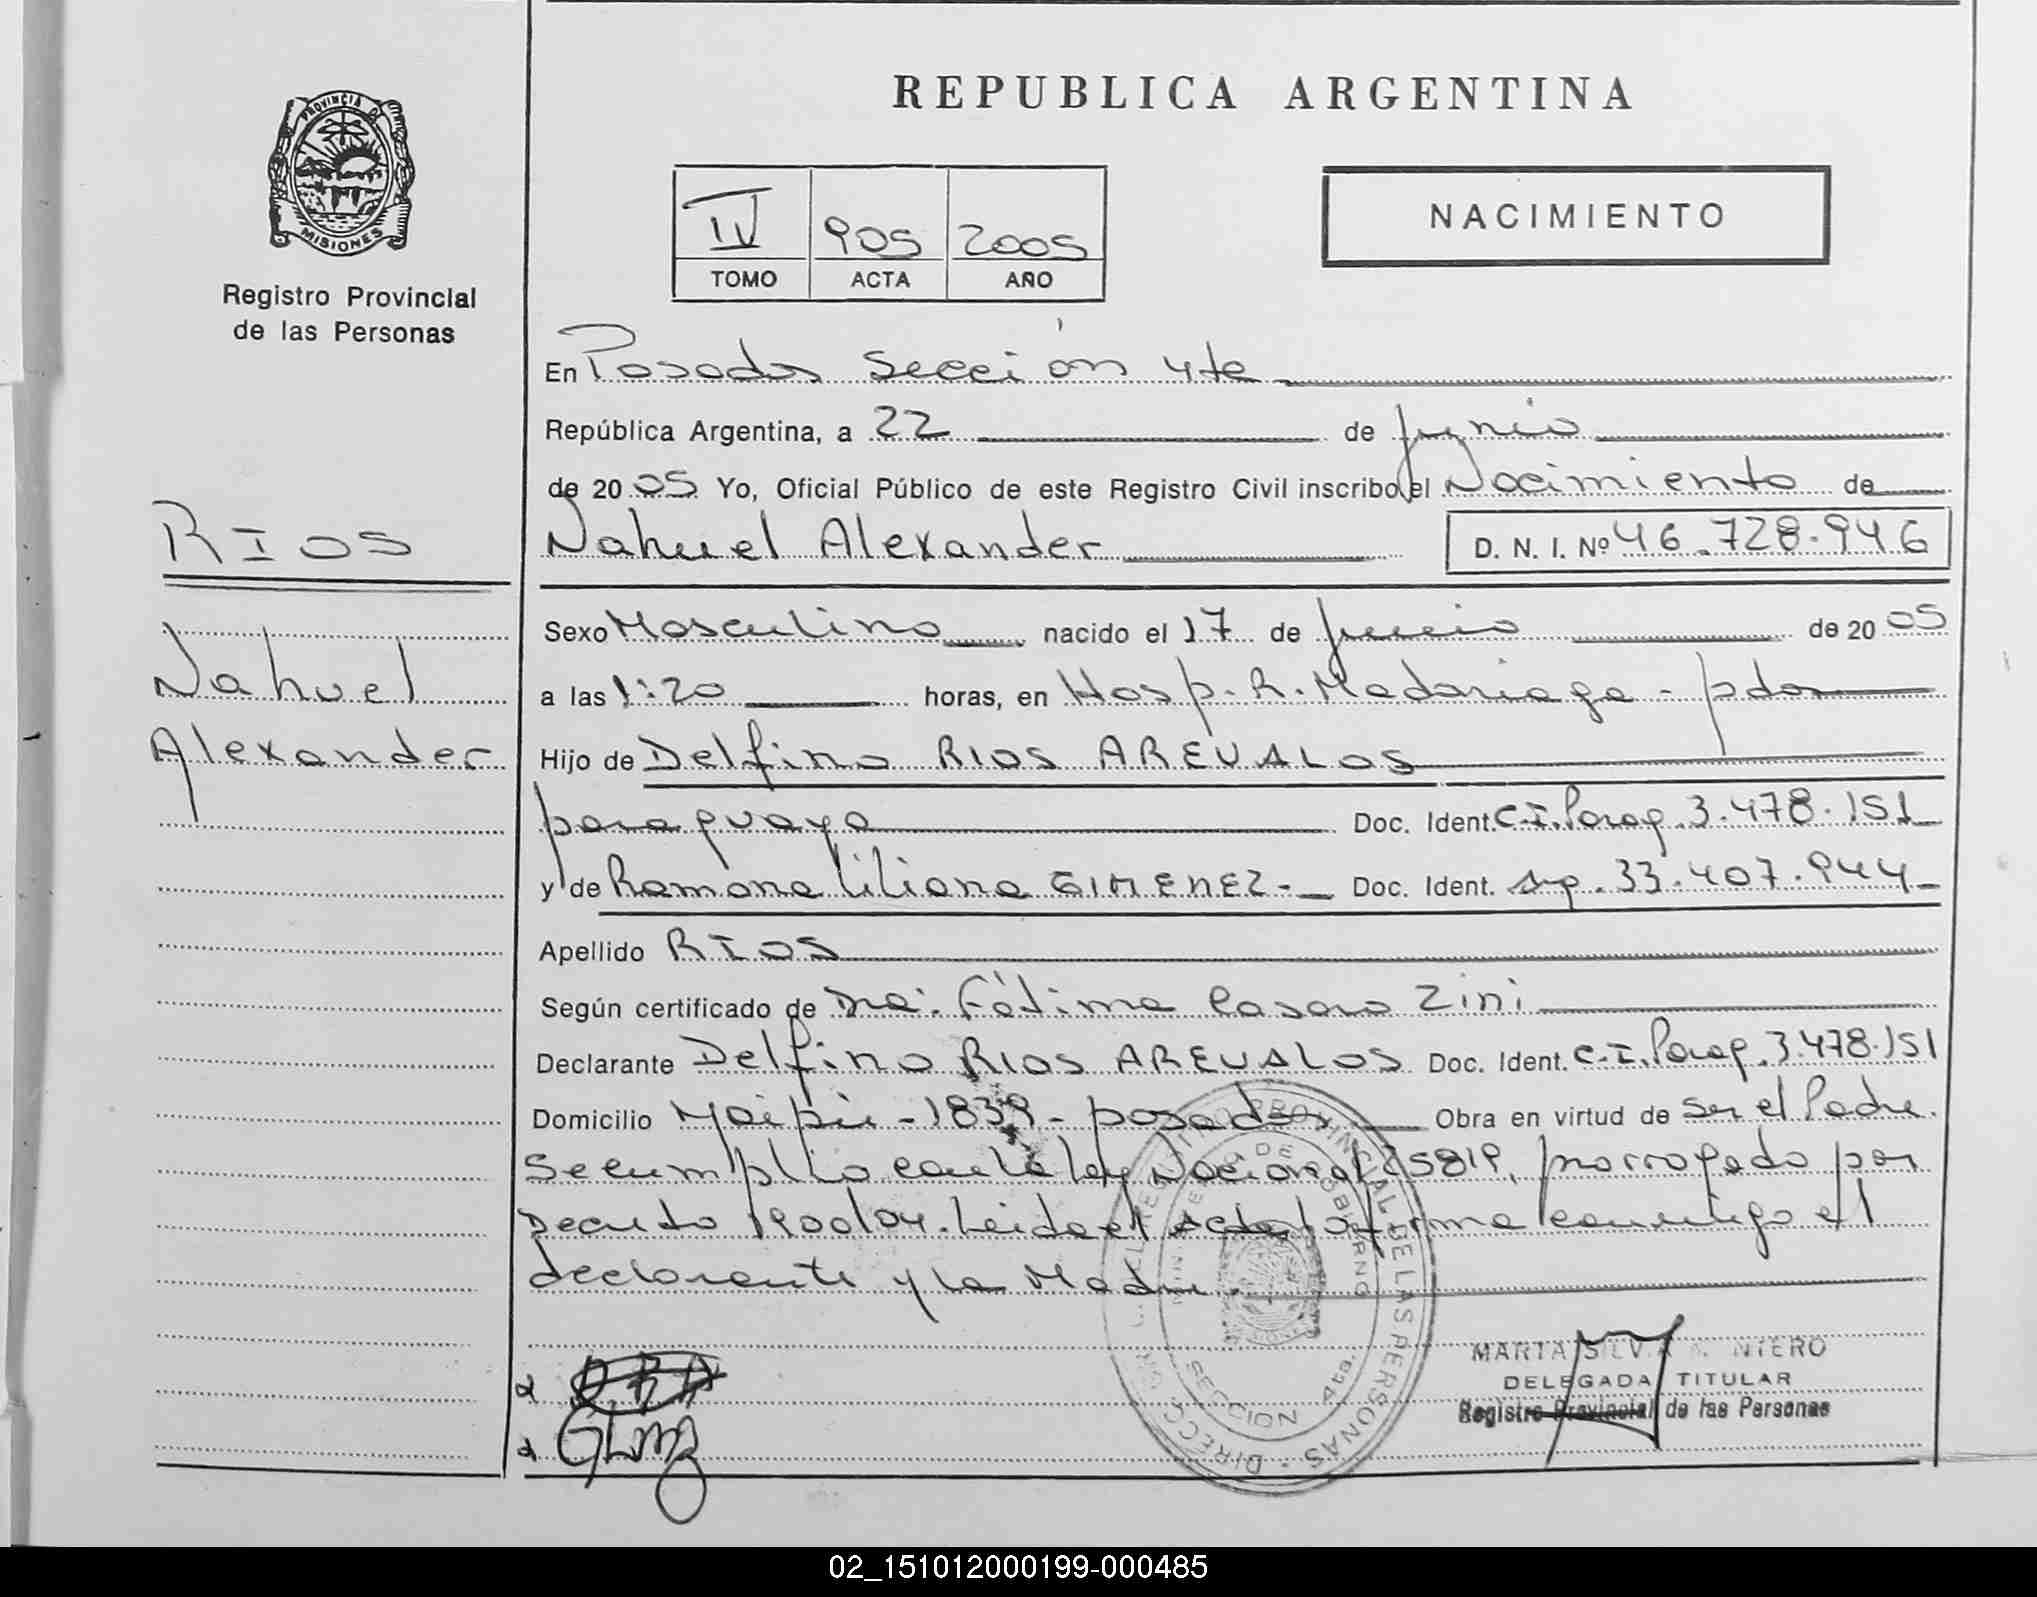 PROVINCIA DE
MISIONES
Registro Provincial
de las Personas
RIOS
Nahuel
Alexander
REPUBLICA ARGENTINA
IV 905 2005
TOMO ACTA AÑO
NACIMIENTO
En Posadas Sección 4ta
República Argentina, a 22 de junio
de 2005 Yo, Oficial Público de este Registro Civil inscribo el Nacimiento de
Nahuel Alexander D. N. I. Nº 46.728.946
Sexo Masculino nacido el 17 de junio de 2005
a las 1:20 horas, en Hosp. R. Madariaga - pdas
Hijo de Delfino RIOS AREVALOS
paraguaya Doc. Ident. C.I. Parag. 3.478.151
y de Ramona Liliana GIMENEZ.- Doc. Ident. 33.407.944
Apellido RIOS
Según certificado de Dra. Fátima Casaro Zini
Declarante Delfino RIOS AREVALOS Doc. Ident. C.I. Parag. 3.478.151
Domicilio Maipú - 1839 - posadas Obra en virtud de ser el Padre.
Se cumplió con la ley Nacional 25819, prorrogado por
Decreto 1900/04. Leida el Acta la firma conmigo el
declarante y la Madre.
MARTA SILVA
DELEGADA TITULAR
Registro Provincial de las Personas
PROVINCIAL DE LAS PERSONAS · DIRECC
MINISTERIO DE GOBIERNO
SECCION 4ta.
02_151012000199-000485